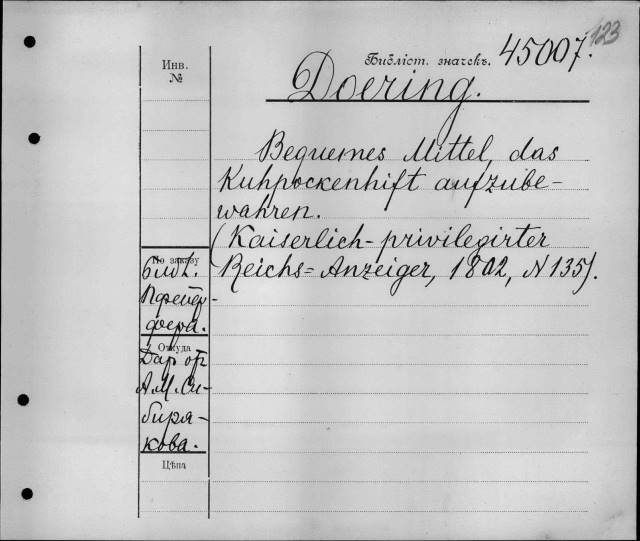 123
Библіот. значекъ. 45007.
Инв.
№
Doering.
Bequemes Mittel, das
Kuhpockenhift aufzube-
wahren.
(Kaiserlich-privilegirter
Reichs=Anzeiger, 1802, N 135).
По заказу
библ.
Пфейф-
фера.
Откуда
Дар от
А.М. Си-
биря-
кова.
Цѣна